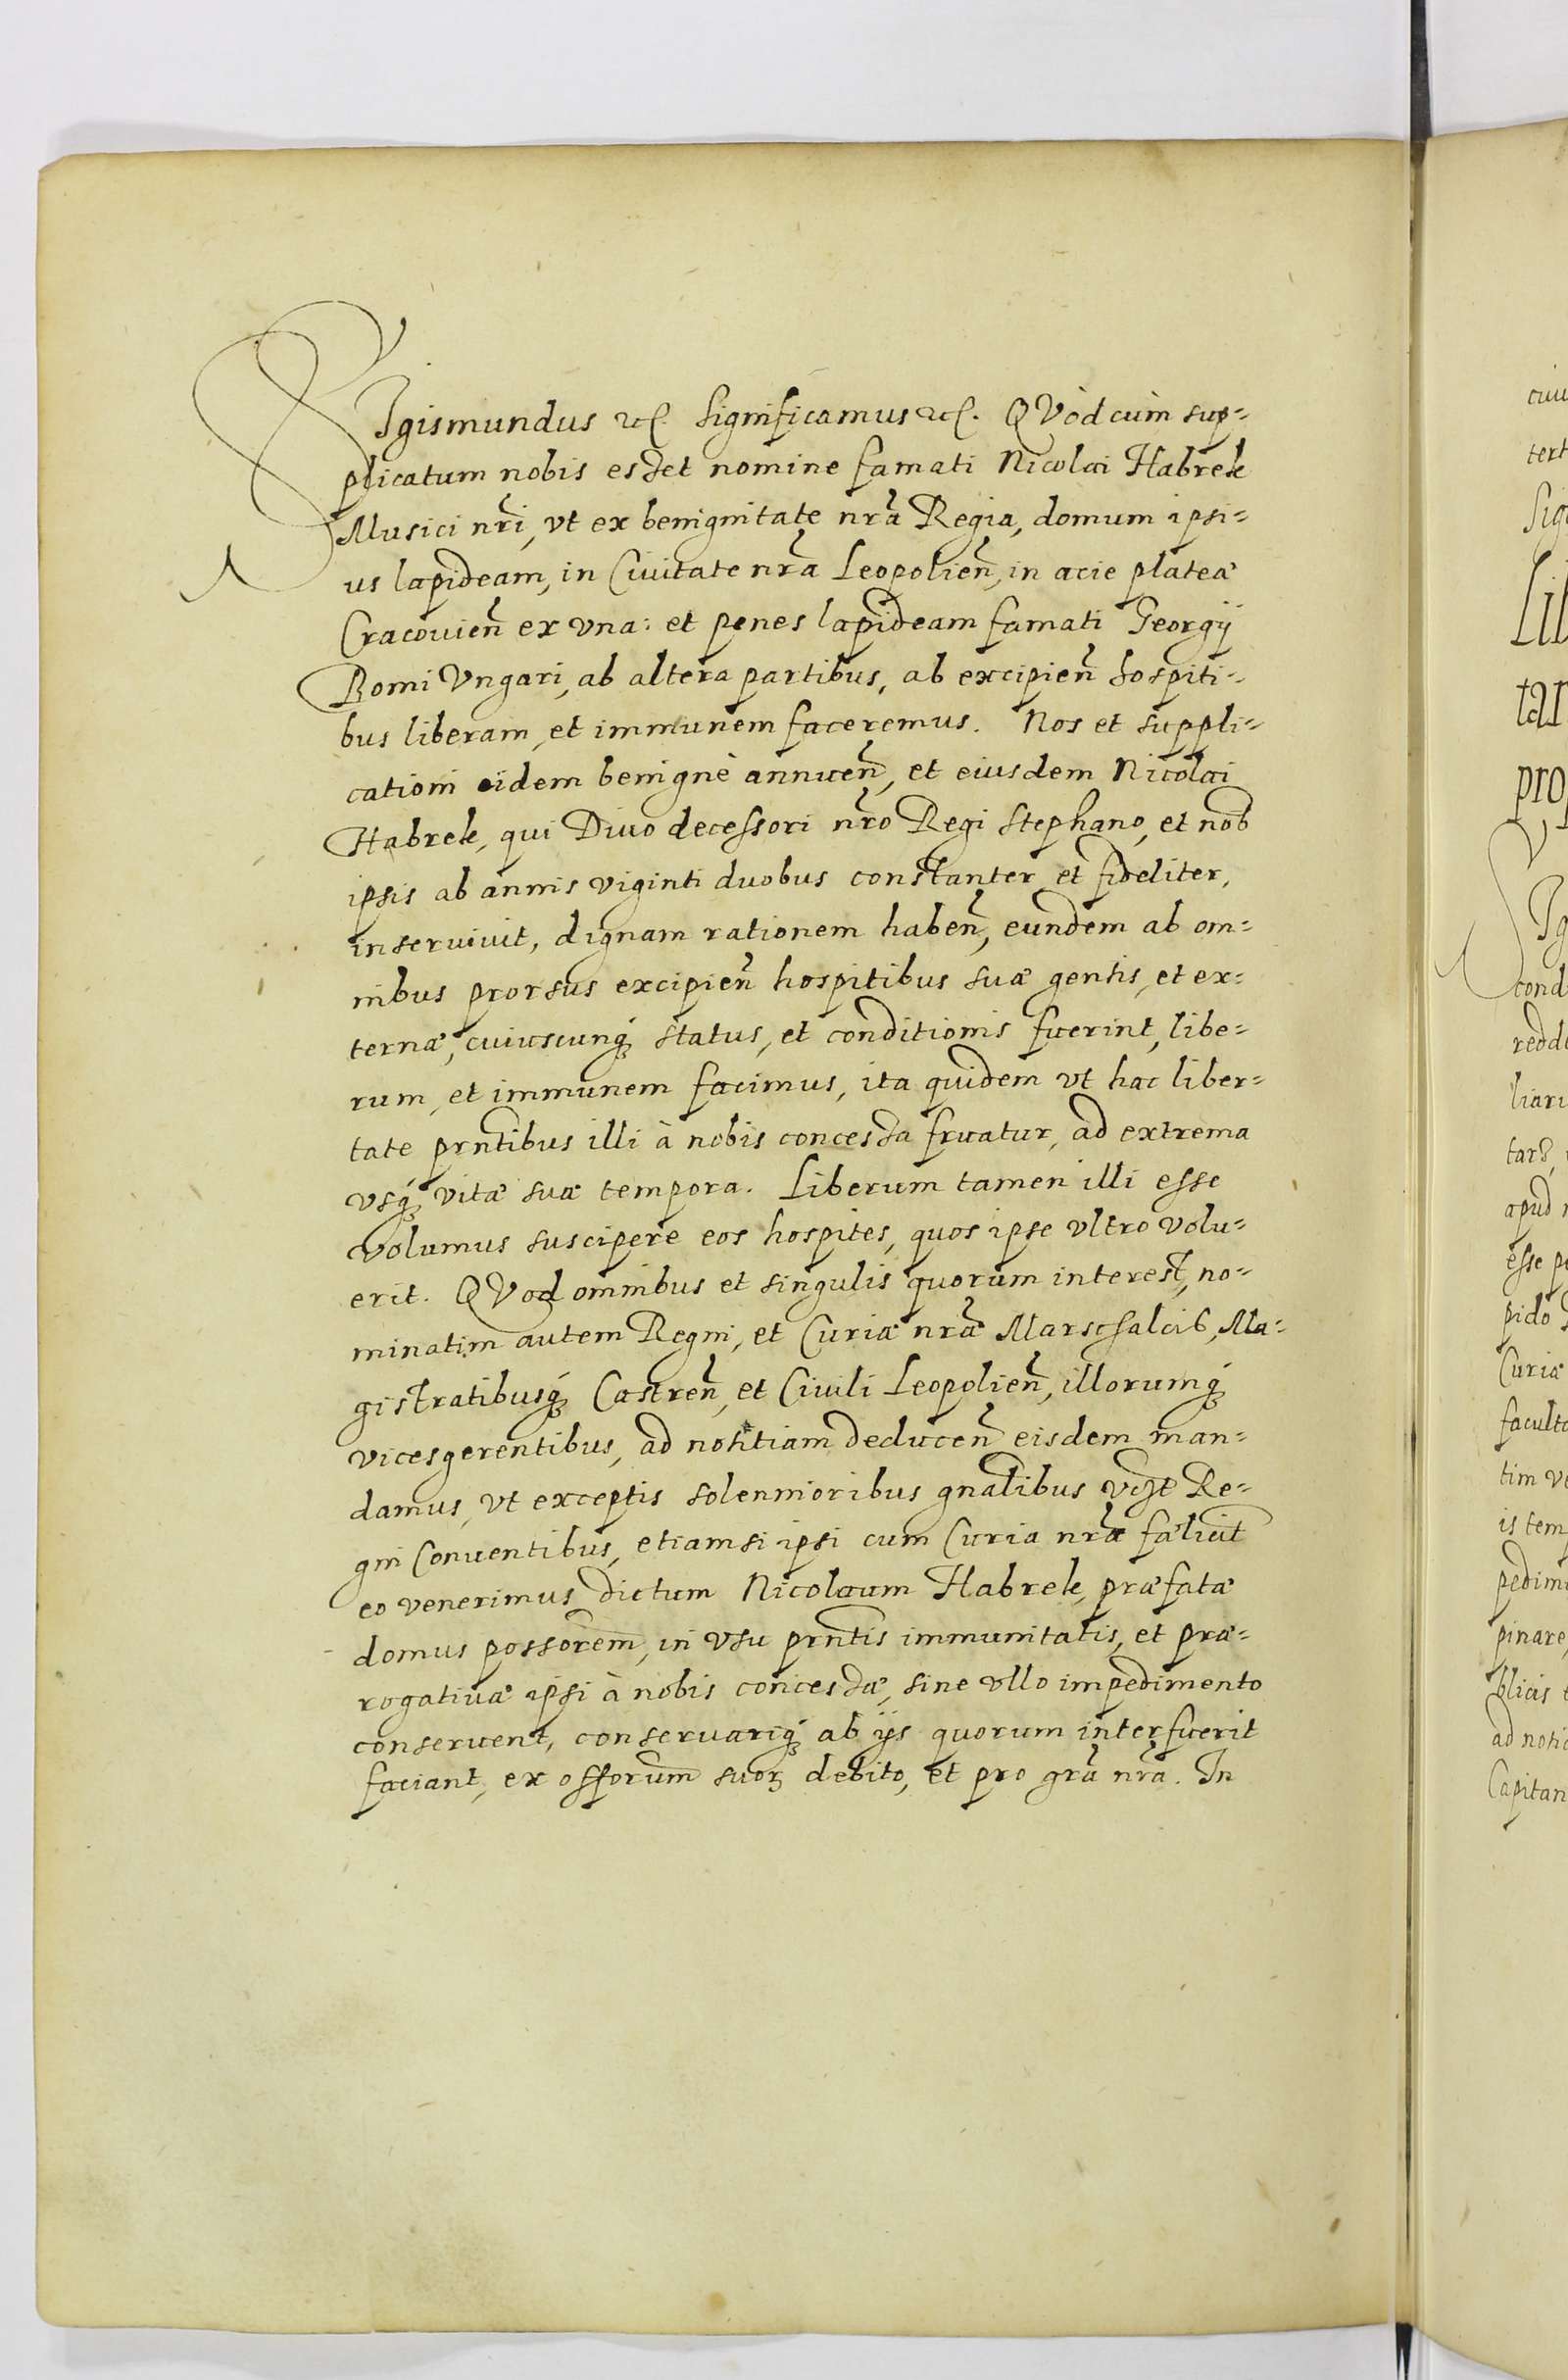 SIgismundus etc. Significamus etc. QVòd cùm sup-
plicatum nobis esset nomine famati Nicolai Habrek
Musici nr̃i, vt ex benignitate nr̃a Regia, domum ipsi-
us lapideam, in Ciuitate nr̃a Leopolien̄, in acie plateæ
Cracouien̄ ex vna: et penes lapideam famati Georgij
Romi Vngari, ab altera partibus, ab excipien̄ hospiti-
bus liberam, et immunem faceremus. Nos et suppli-
cationi eidem benignè annuen̄, et eiusdem Nicolai
Habrek, qui Diuo decessori nr̃o Regi Stephano, et nob
ipsis ab annis viginti duobus constanter et fideliter,
inseruiuit, dignam rationem haben̄, eundem ab om-
nibus prorsus excipien̄ hospitibus suæ gentis, et ex-
ternæ, cuiuscunq́; status, et conditionis fuerint, libe-
rum, et immunem facimus, ita quidem vt hac liber-
tate prñtibus illi à nobis concessa fruatur, ad extrema
vsq́; vitæ suæ tempora. Liberum tamen illi esse
volumus suscipere eos hospites, quos ipse vltro volu-
erit. QVod omnibus et singulis quorum interest, no-
minatim autem Regni, et Curiæ nr̃æ Marschalcis, Ma-
gistratibusq́; Castren̄, et Ciuili Leopolien̄, illorumq́;
vicesgerentibus, ad notitiam deducen̄ eisdem man-
damus, vt exceptis solennioribus gnãlibus Re-
gni Conuentibus, etiamsi ipsi cum Curia nr̃a fælicit
eo venerimus, dictum Nicolaum Habrek, præfatæ
domus possorem̄, in vsu prñtis immunitatis, et præ-
rogatiuæ ipsi à nobis concessæ, sine vllo impedimento
conseruent, conseruariq́; ab ijs quorum interfuerit
faciant, ex offorum̄ suoꝝ debito, et pro grã nr̃a. In
cond
apud
Curiæ
tim
is tem
pinare,
Capitan